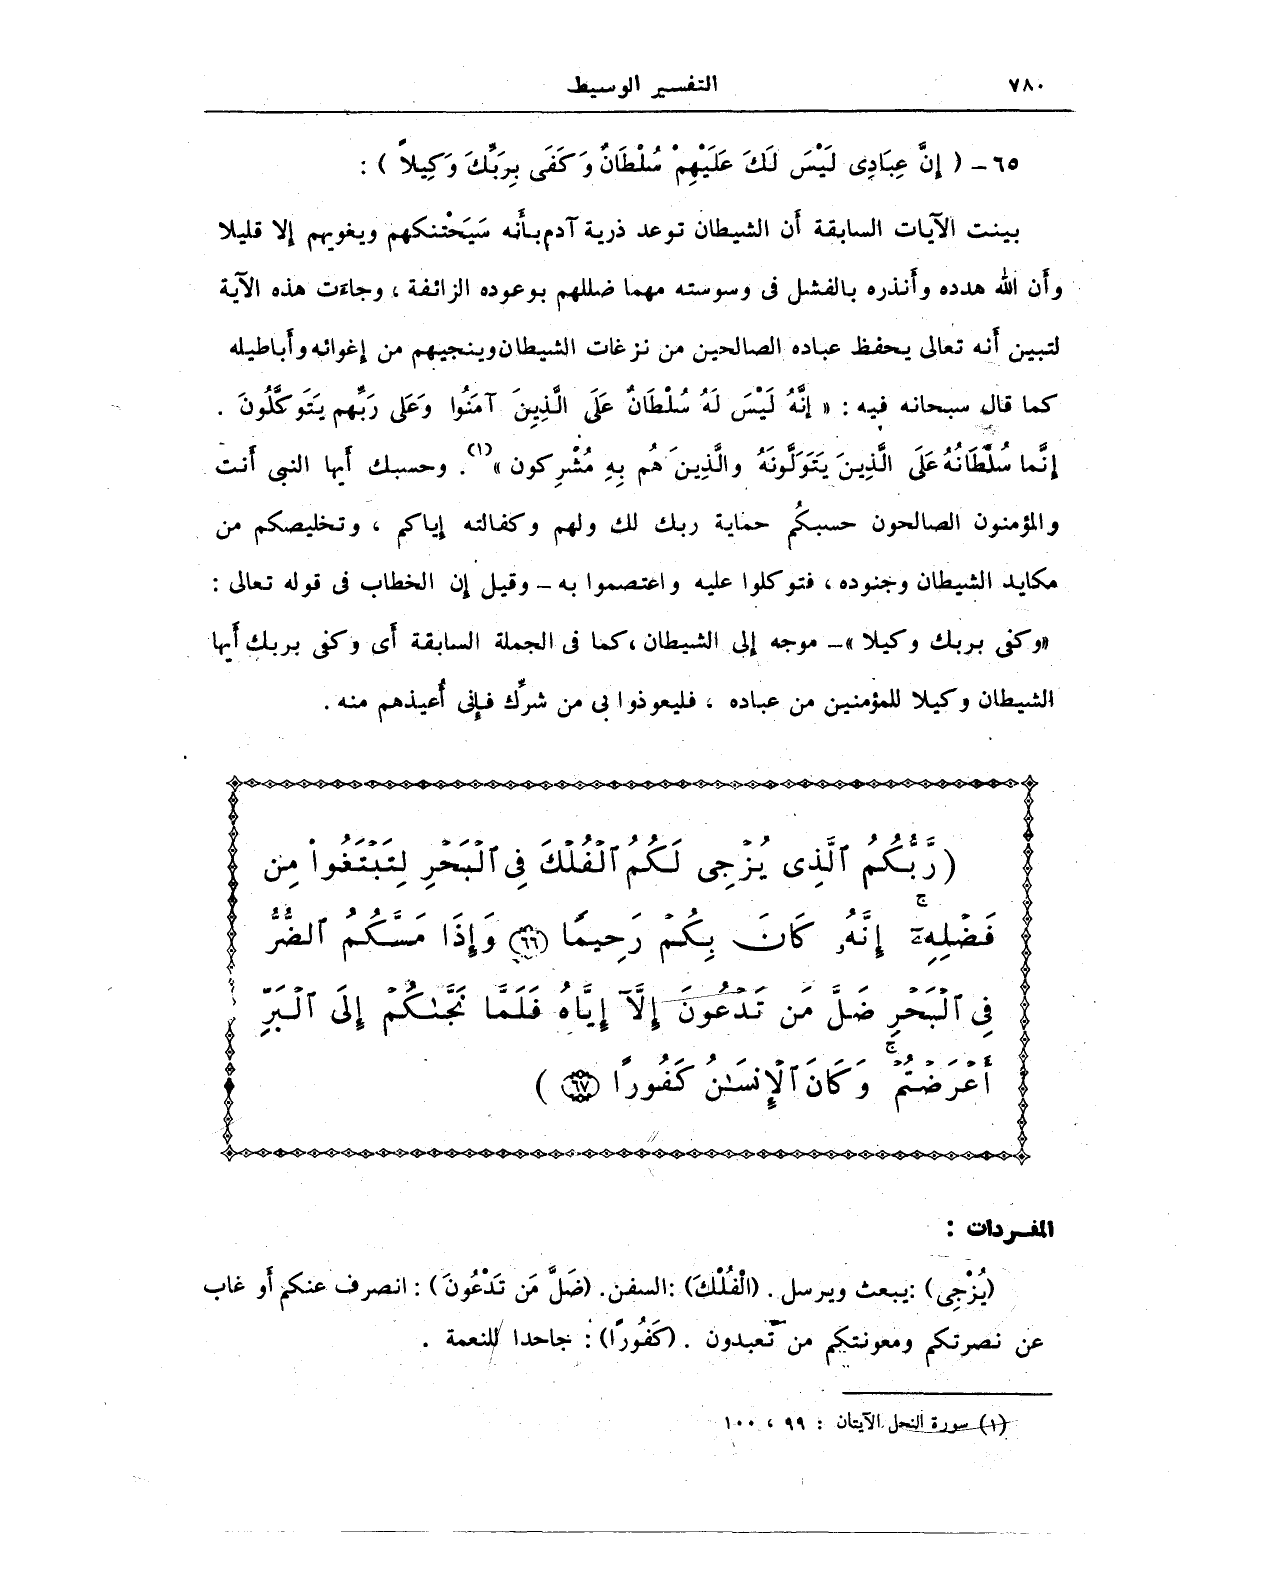 ٧٨٠
التفسير الوسيط
٦٥ - ( إِنَّ عِبَادِى لَيْسَ لَكَ عَلَيْهِمْ سُلْطَانٌ وَكَفَى بِرَبِّكَ وَكِيلاً ) :
بينت الآيات السابقة أن الشيطان توعد ذرية آدم بأنه سَيَحْتنكهم ويغويهم إلا قليلا
وأن الله هدده وأنذره بالفشل فى وسوسته مهما ضللهم بوعوده الزائفة ، وجاءت هذه الآية
لتبين أنه تعالى يحفظ عباده الصالحين من نزغات الشيطان وينجيهم من إغوائه وأباطيله
كما قال سبحانه فيه : « إِنَّهُ لَيْسَ لَهُ سُلْطَانٌ عَلَى الَّذِينَ آمَنُوا وَعَلَى رَبِّهِم يَتَوَكَّلُونَ .
إِنَّما سُلْطَانُهُ عَلَى الَّذِينَ يَتَوَلَّونَهُ والَّذِينَ هُم بِهِ مُشْرِكون »(١). وحسبك أيها النبى أنت
والمؤمنون الصالحون حسبكُم حماية ربك لك ولهم وكفالته إياكم ، وتخليصكم من
مكايد الشيطان وجنوده ، فتوكلوا عليه واعتصموا به - وقيل إن الخطاب فى قوله تعالى :
«وكفى بربك وكيلا» - موجه إلى الشيطان ، كما فى الجملة السابقة أى وكفى بربك أيها
الشيطان وكيلا للمؤمنين من عباده ، فليعوذوا بى من شرِّك فإنى أُعيذهم منه .
(رَّبُّكُمُ ٱلَّذِى يُزْجِى لَكُمُ ٱلْفُلْكَ فِى ٱلْبَحْرِ لِتَبْتَغُوا۟ مِن
فَضْلِهِۦٓ ۚ إِنَّهُۥ كَانَ بِكُمْ رَحِيمًا (٦٦) وَإِذَا مَسَّكُمُ ٱلضُّرُّ
فِى ٱلْبَحْرِ ضَلَّ مَن تَدْعُونَ إِلَّآ إِيَّاهُ فَلَمَّا نَجَّىٰكُمْ إِلَى ٱلْبَرِّ
أَعْرَضْتُمْ ۚ وَكَانَ ٱلْإِنسَـٰنُ كَفُورًا (٦٧) )
المفردات :
(يُزْجِى) : يبعث ويرسل . (الْفُلْكَ) : السفن. (ضَلَّ مَن تَدْعُونَ) : انصرف عنكم أو غاب
عن نصرتكم ومعونتكم من تعبدون . (كَفُورًا) : جاحدا للنعمة .
(١) سورة النحل الآيتان : ٩٩ ، ١٠٠